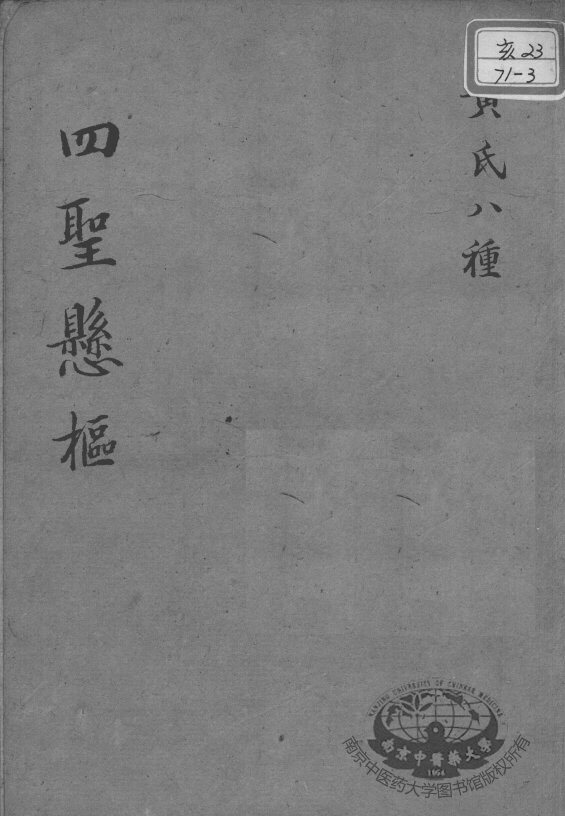 亥23
71-3
黄氏八種
四聖懸樞
NANJING UNIVERSITY OF CHINESE MEDICINE
南京中醫藥大學
1954
南京中医药大学图书馆版权所有